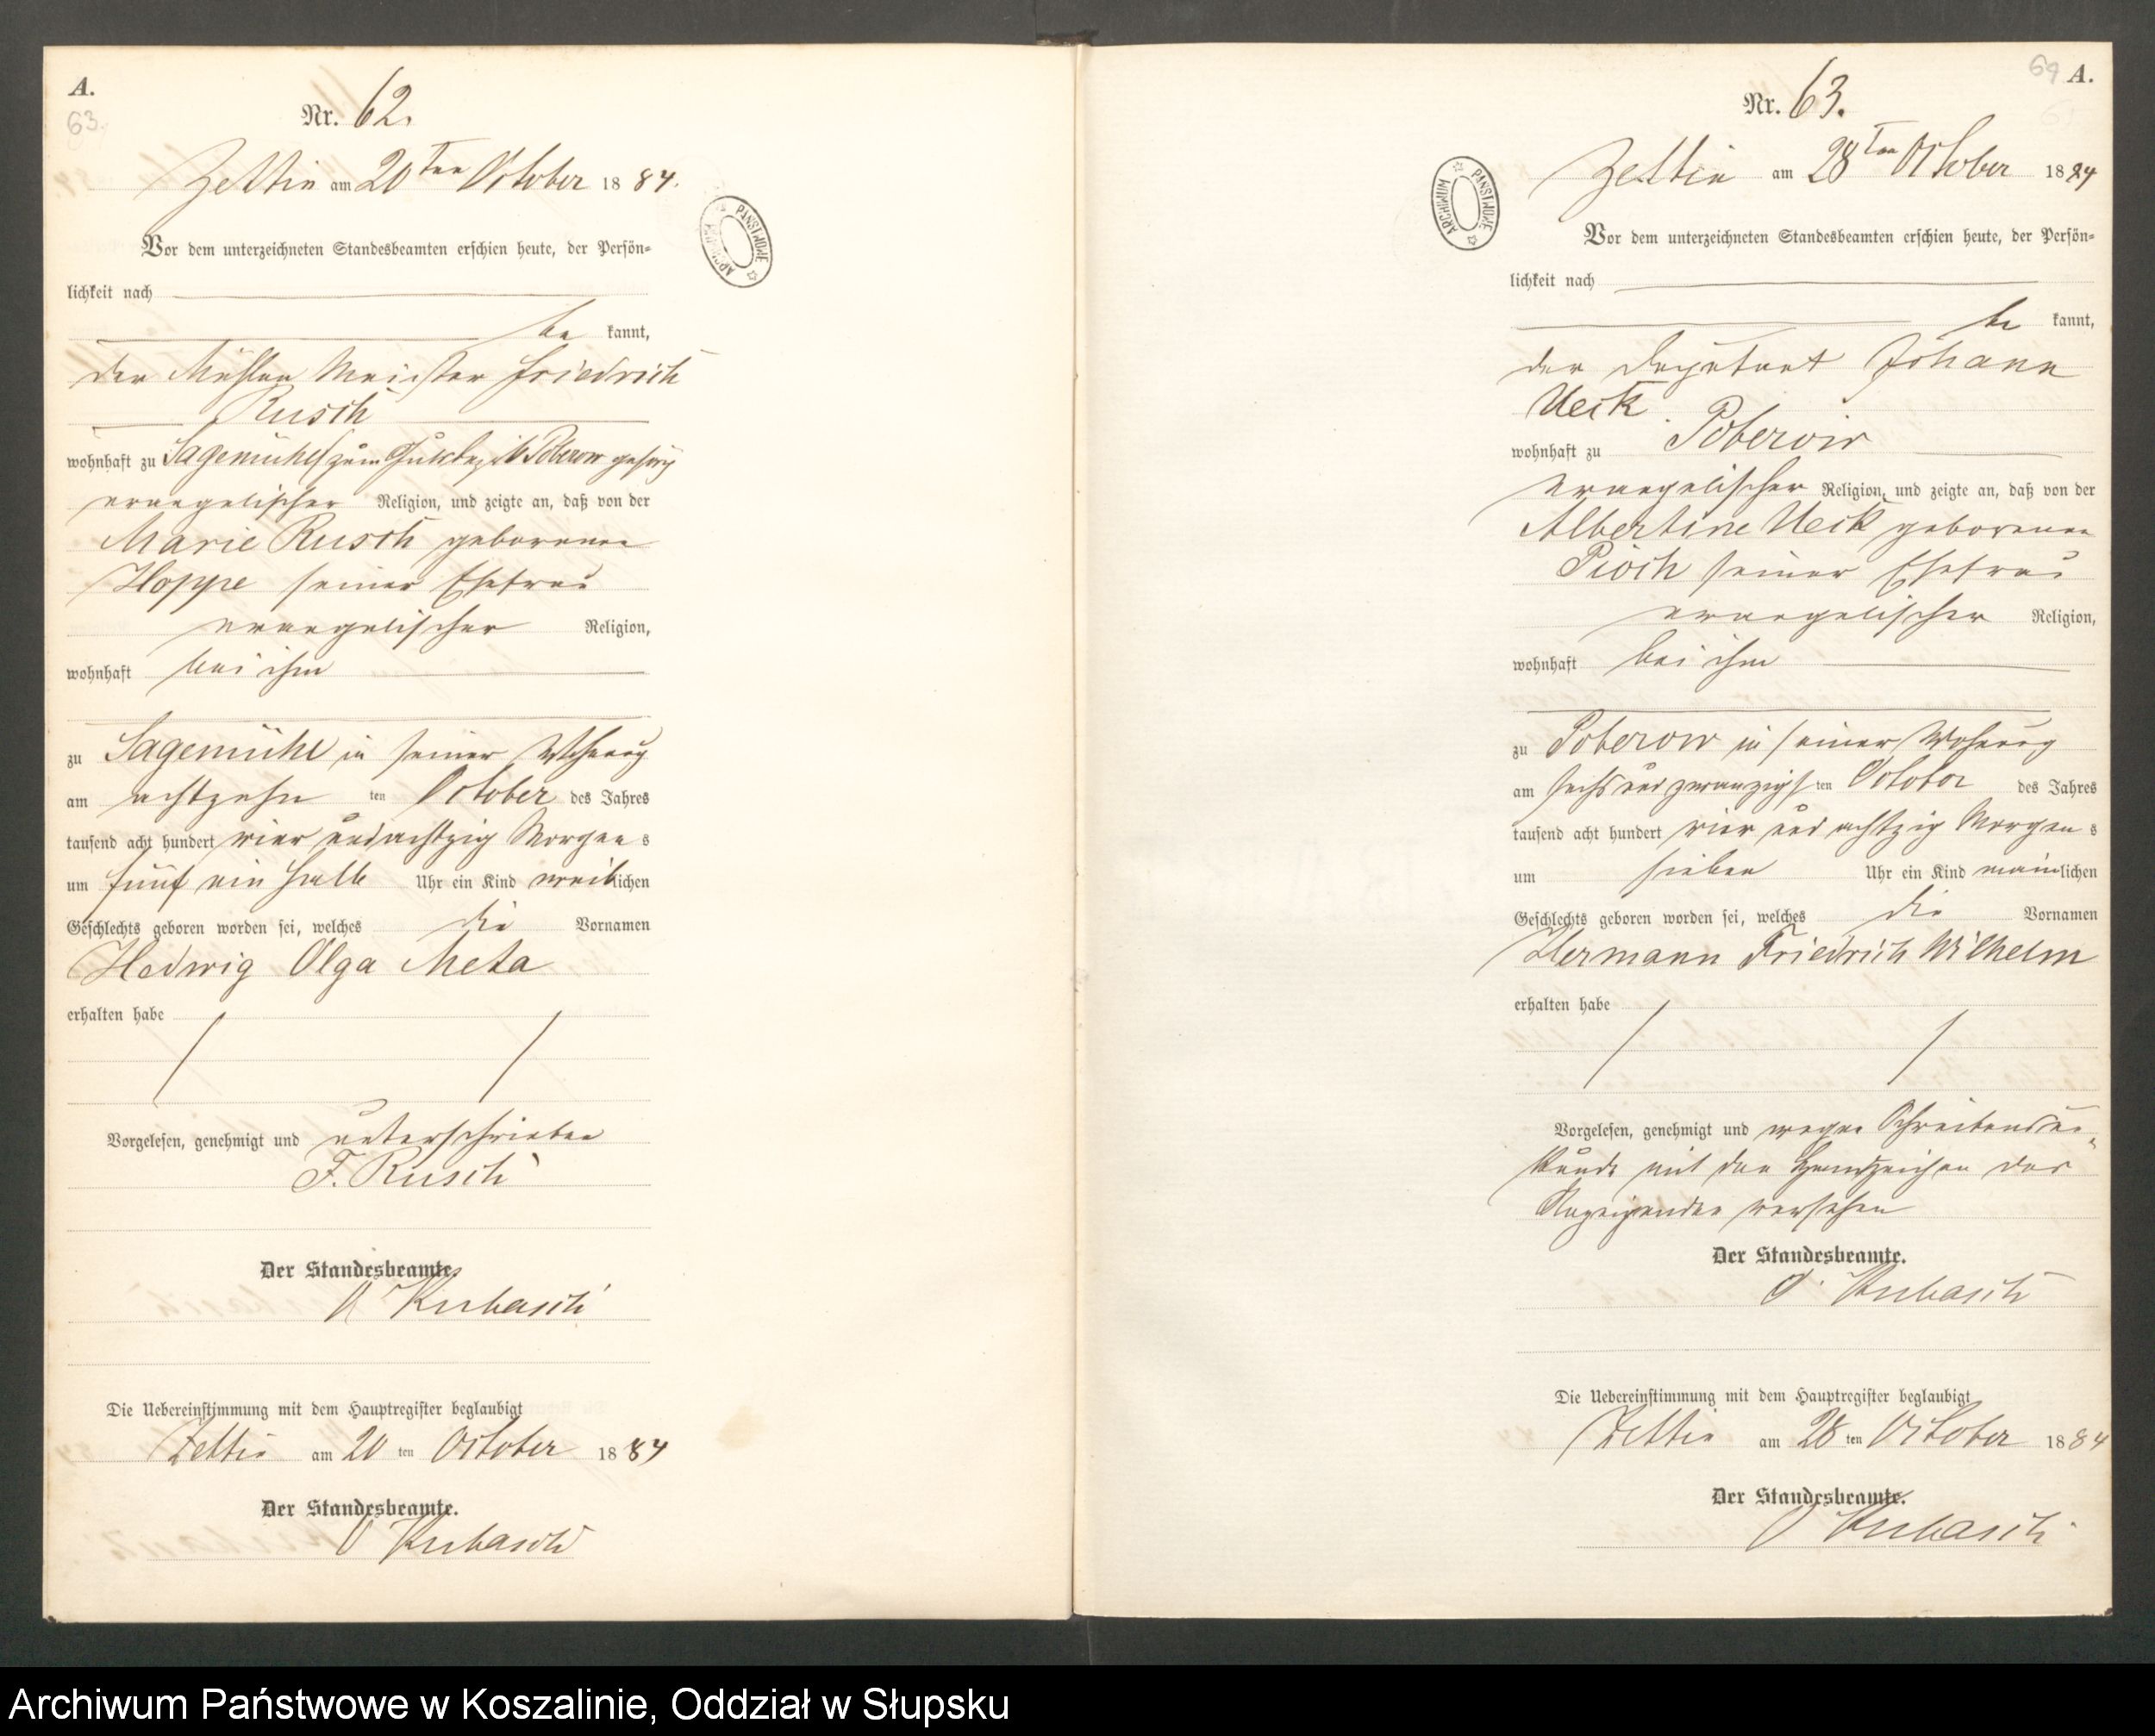 A.
63.
Nr. 62.
Zettin am 20ten October 1884.
Vor dem unterzeichneten Standesbeamten erschien heute, der Persön-
lichkeit nach
be kannt,
der Mühlen Meister Friedrich
Rusch
wohnhaft zu Sagemühl (zum Gutsbezirk Poberow gehörig
evangelischer Religion, und zeigte an, daß von der
Marie Rusch geborenen
Hoppe seiner Ehefrau
evangelischer Religion,
wohnhaft bei ihm
zu Sagemühl in seiner Wohnung
am achtzehn ten October des Jahres
tausend acht hundert vier und achtzig Morgens
um fünf ein halb Uhr ein Kind weiblichen
Geschlechts geboren worden sei, welches die Vornamen
Hedwig Olga Meta
erhalten habe
Vorgelesen, genehmigt und unterschrieben
F. Rusch
Der Standesbeamte.
Kubasch
Die Uebereinstimmung mit dem Hauptregister beglaubigt
Zettin am 20 ten October 1884
Der Standesbeamte.
Kubasch
ARCHIWUM PAŃSTWOWE
69 A.
Nr. 63.
Zettin am 28ten October 1884
Vor dem unterzeichneten Standesbeamten erschien heute, der Persön-
lichkeit nach
be kannt,
der Deputant Johann
Ueck
wohnhaft zu Poberow
evangelischer Religion, und zeigte an, daß von der
Albertine Ueck geborenen
Pioch seiner Ehefrau
evangelischer Religion,
wohnhaft bei ihm
zu Poberow in seiner Wohnung
am sechs und zwanzigsten October des Jahres
tausend acht hundert vier und achtzig Morgens
um sieben Uhr ein Kind männlichen
Geschlechts geboren worden sei, welches die Vornamen
Hermann Friedrich Wilhelm
erhalten habe
Vorgelesen, genehmigt und wegen Schreibensun-
kunde mit den Handzeichen des
Anzeigenden versehen
Der Standesbeamte.
Kubasch
Die Uebereinstimmung mit dem Hauptregister beglaubigt
Zettin am 28 ten October 1884
Der Standesbeamte.
Kubasch
ARCHIWUM PAŃSTWOWE
Archiwum Państwowe w Koszalinie, Oddział w Słupsku